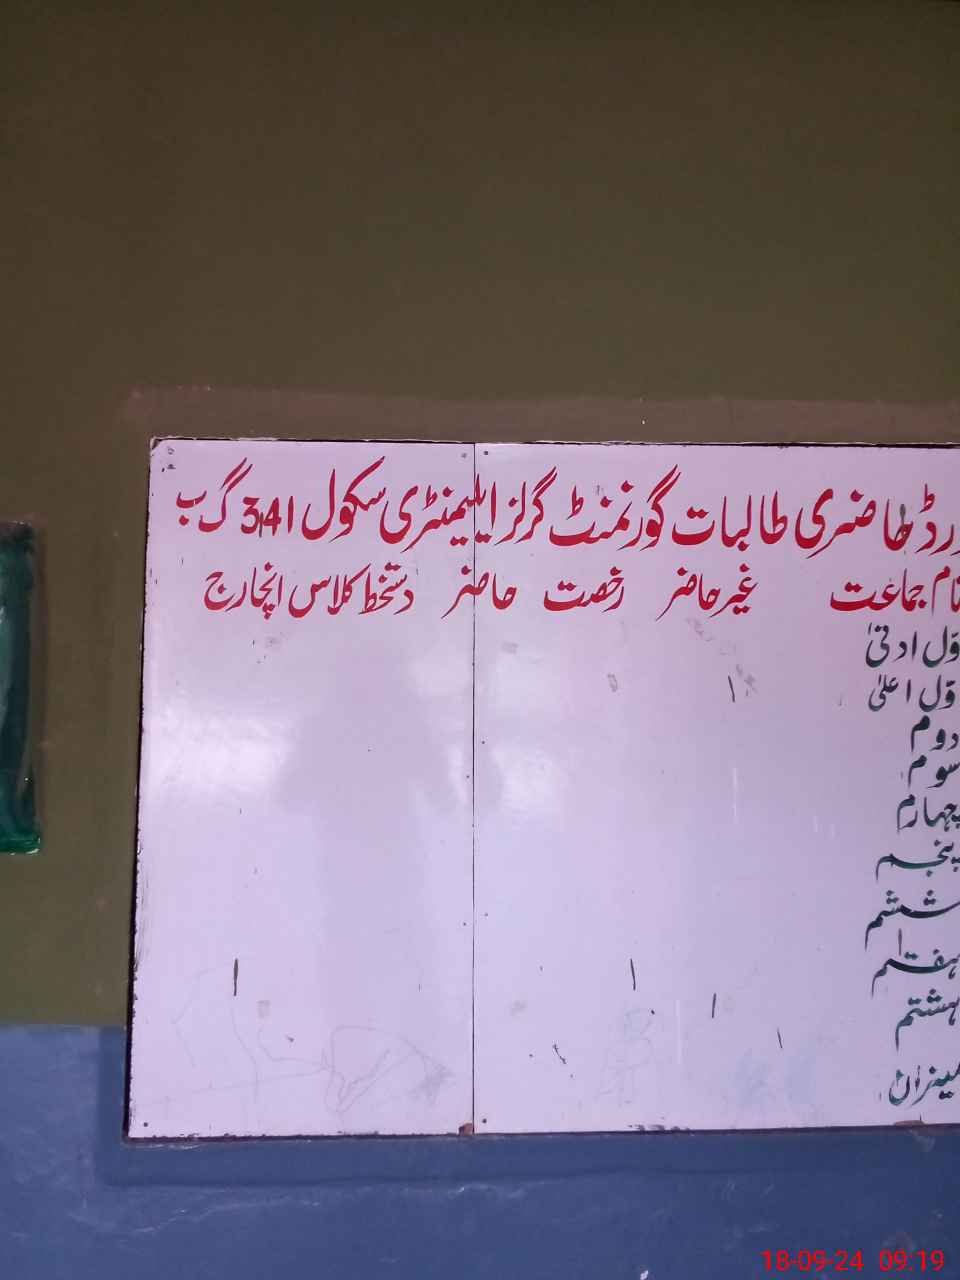 رڈ حاضری طالبات گورنمنٹ گرلز ایلیمنٹری سکول 341 گ ب
نام جماعت غیر حاضر رخصت حاضر دستخط کلاس انچارج
وّل ادنیٰ
وّل اعلیٰ
دوم
سوم
چہارم
پنجم
ششم
ہفتم
ہشتم
میزان
18-09-24 09:19